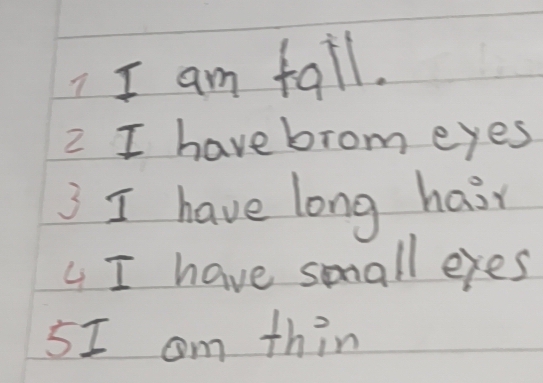 1 I am tall.
2 I have brom eyes
3 I have long hair
4 I have small eyes
5 I am thin